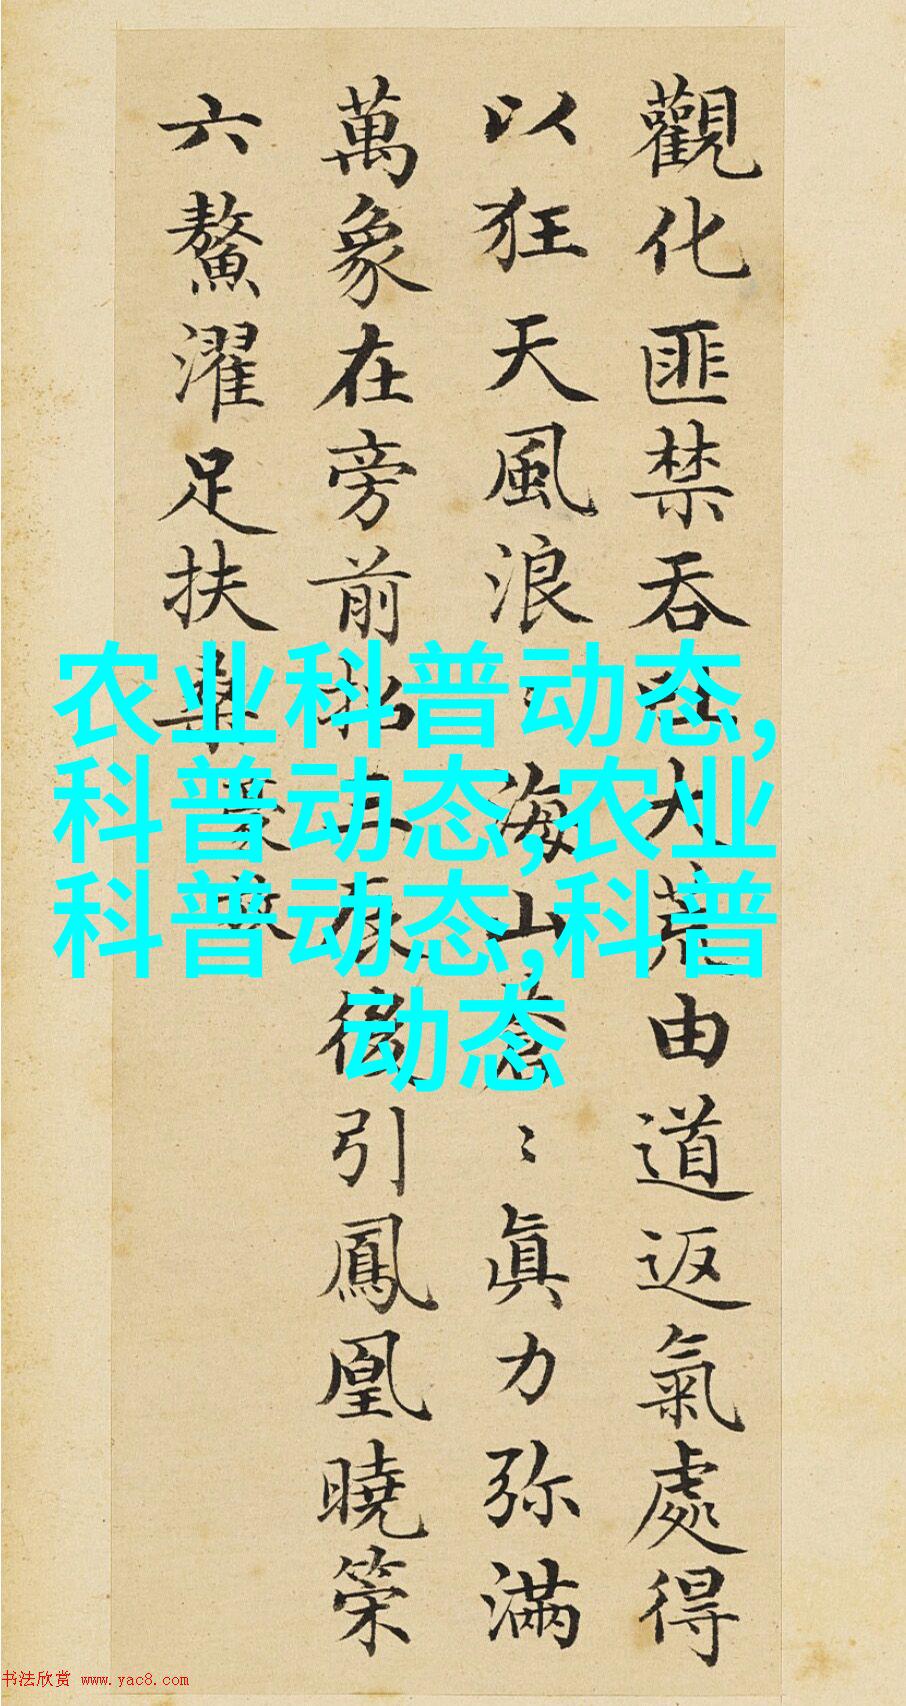 觀化匪禁吞大荒由道返氣處得
以狂天風浪海山蒼〻眞力弥滿
萬象在旁前招三辰後引鳳凰曉策
六鰲濯足扶桑
农业科普动态,
科普动态,农业
科普动态,科普
动态
书法欣赏 www.yac8.com